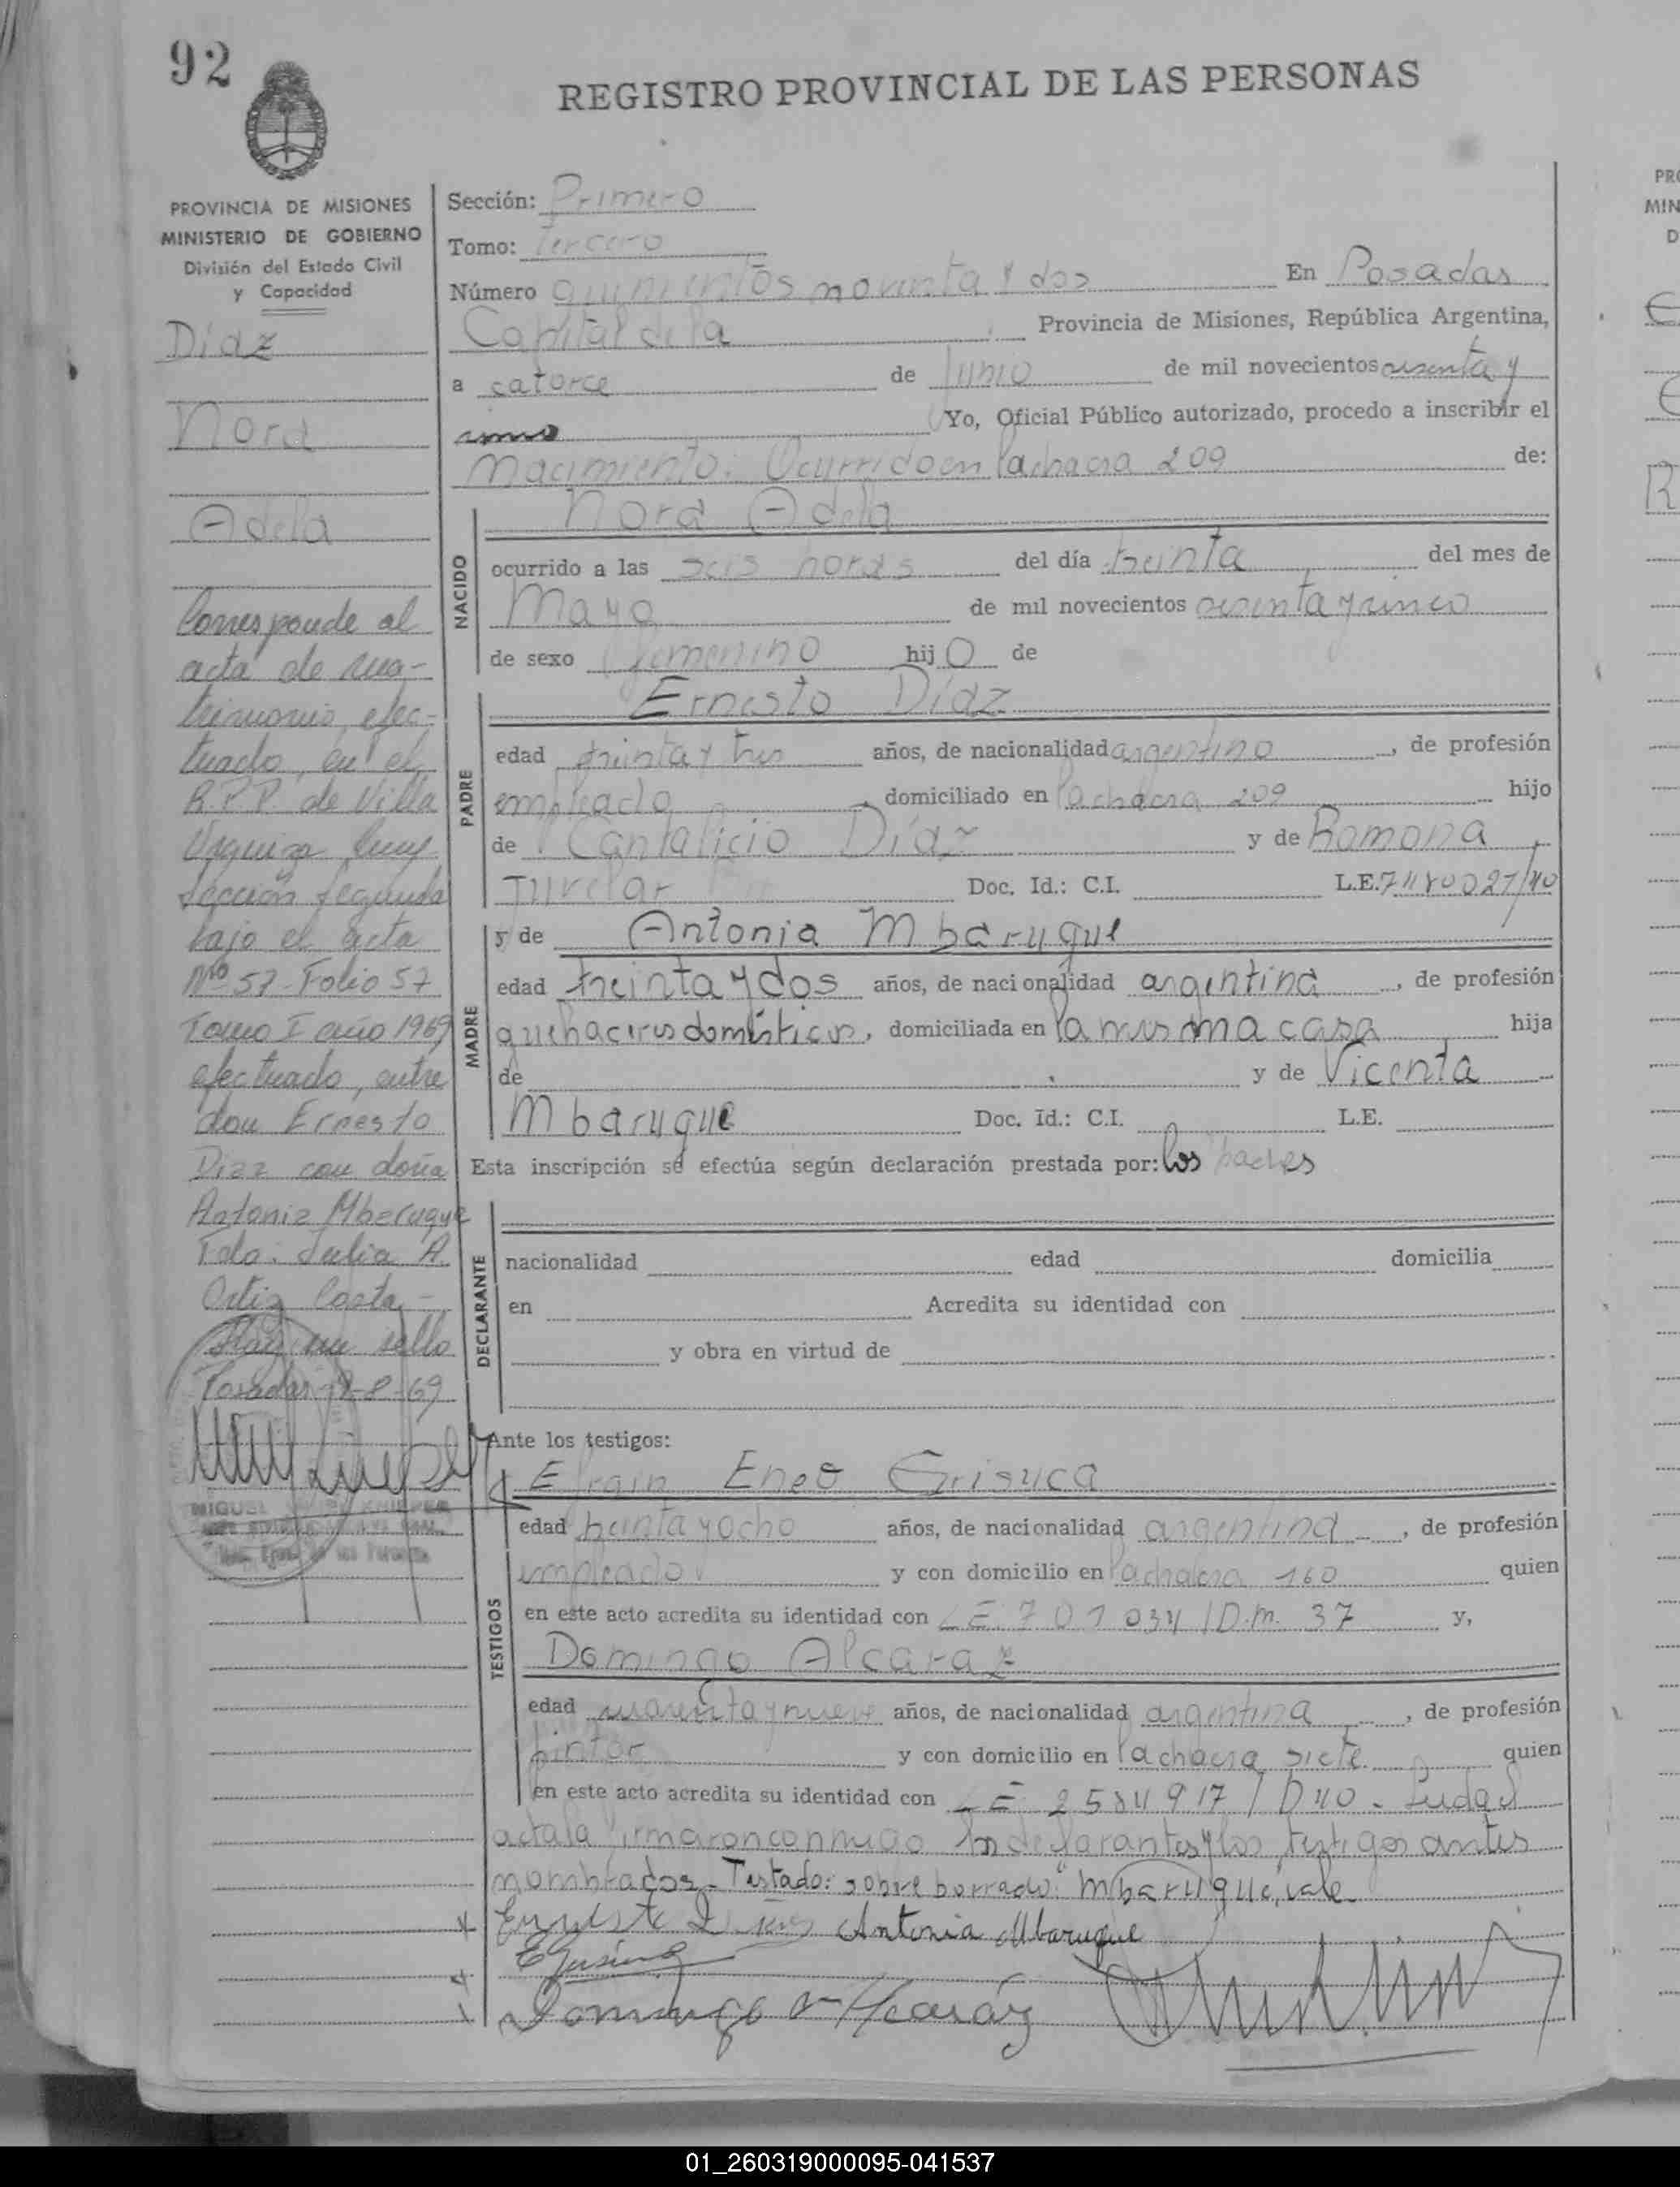 92
REGISTRO PROVINCIAL DE LAS PERSONAS
PROVINCIA DE MISIONES
MINISTERIO DE GOBIERNO
División del Estado Civil
y Capacidad
Díaz
Nora
Adela
Corresponde al
acta de ma-
trimonio efec-
tuado, en el
R.P.P. de Villa
Urquiza
Sección Segunda
bajo el acta
Nro 57 - Folio 57
Tomo I año 1969
efectuado, entre
don Ernesto
Diaz con doña
Antonia Mbaruque
Fdo: Julia A.
Ortiz Costa -
Hay un sello
Posadas -8-69
MIGUEL
Sección: Primero
Tomo: Tercero
Número quinientos noventa y dos En Posadas
Capital de la Provincia de Misiones, República Argentina,
a catorce de Junio de mil novecientos sesenta y
cinco Yo, Oficial Público autorizado, procedo a inscribir el
nacimiento: Ocurrido en la chacra 209 de:
NACIDO
Nora Adela
ocurrido a las seis horas del día treinta del mes de
Mayo de mil novecientos sesenta y cinco
de sexo femenino hij O de
PADRE
Ernesto Díaz
edad treinta y tres años, de nacionalidad argentino, de profesión
empleado, domiciliado en la chacra 209 hijo
de Cantalicio Díaz y de Romona
Doc. Id.: C.I. L.E.
MADRE
y de Antonia Mbaruque
edad treinta y dos años, de nacionalidad argentina, de profesión
quehaceres domésticos, domiciliada en la misma casa hija
de y de Vicenta
Mbaruque Doc. Id.: C.I. L.E.
Esta inscripción se efectúa según declaración prestada por: los padres
DECLARANTE
nacionalidad edad domicilia
en Acredita su identidad con
y obra en virtud de
Ante los testigos:
TESTIGOS
Efrain Eneo
edad treinta y ocho años, de nacionalidad argentina, de profesión
empleado y con domicilio en la chacra 160 quien
en este acto acredita su identidad con LE 701 034 / D.M. 37 y,
Domingo Alcaraz
edad cuarenta y nueve años, de nacionalidad argentina, de profesión
pintor y con domicilio en la chacra siete quien
en este acto acredita su identidad con LE 2584917 / D 40 -
acta la firmaron conmigo los declarantes y los testigos antes
nombrados - Testado: sobre borrado: "Mbaruque, vale
Antonia Mbaruque
Domingo Alcaráz
01_260319000095-041537